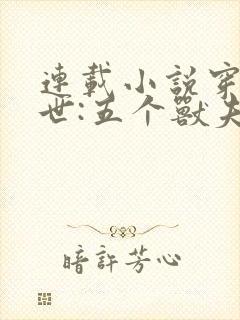 連載小説穿
世:五个獸夫
暗許芳心